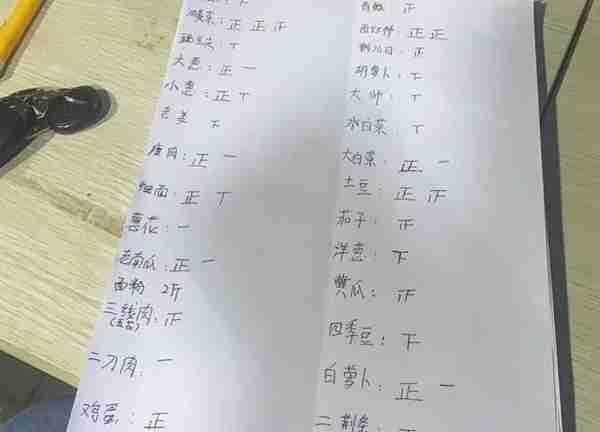 正 正 下
丅
大葱：正 一
小葱：正 丅
老姜 下
瘦肉：正 一
细面：正 丅
葱花：一
老南瓜：正 一
面粉 2斤
三线肉：正
(五花)
二刀肉：一
鸡蛋：正
正
西红柿：正 正
正
胡萝卜：丅
大 丅
水白菜：丅
大白菜：正 一
土豆：正 正
茄子：正
洋葱：下
黄瓜：正
四季豆：下
白萝卜：正 一
二荆条：